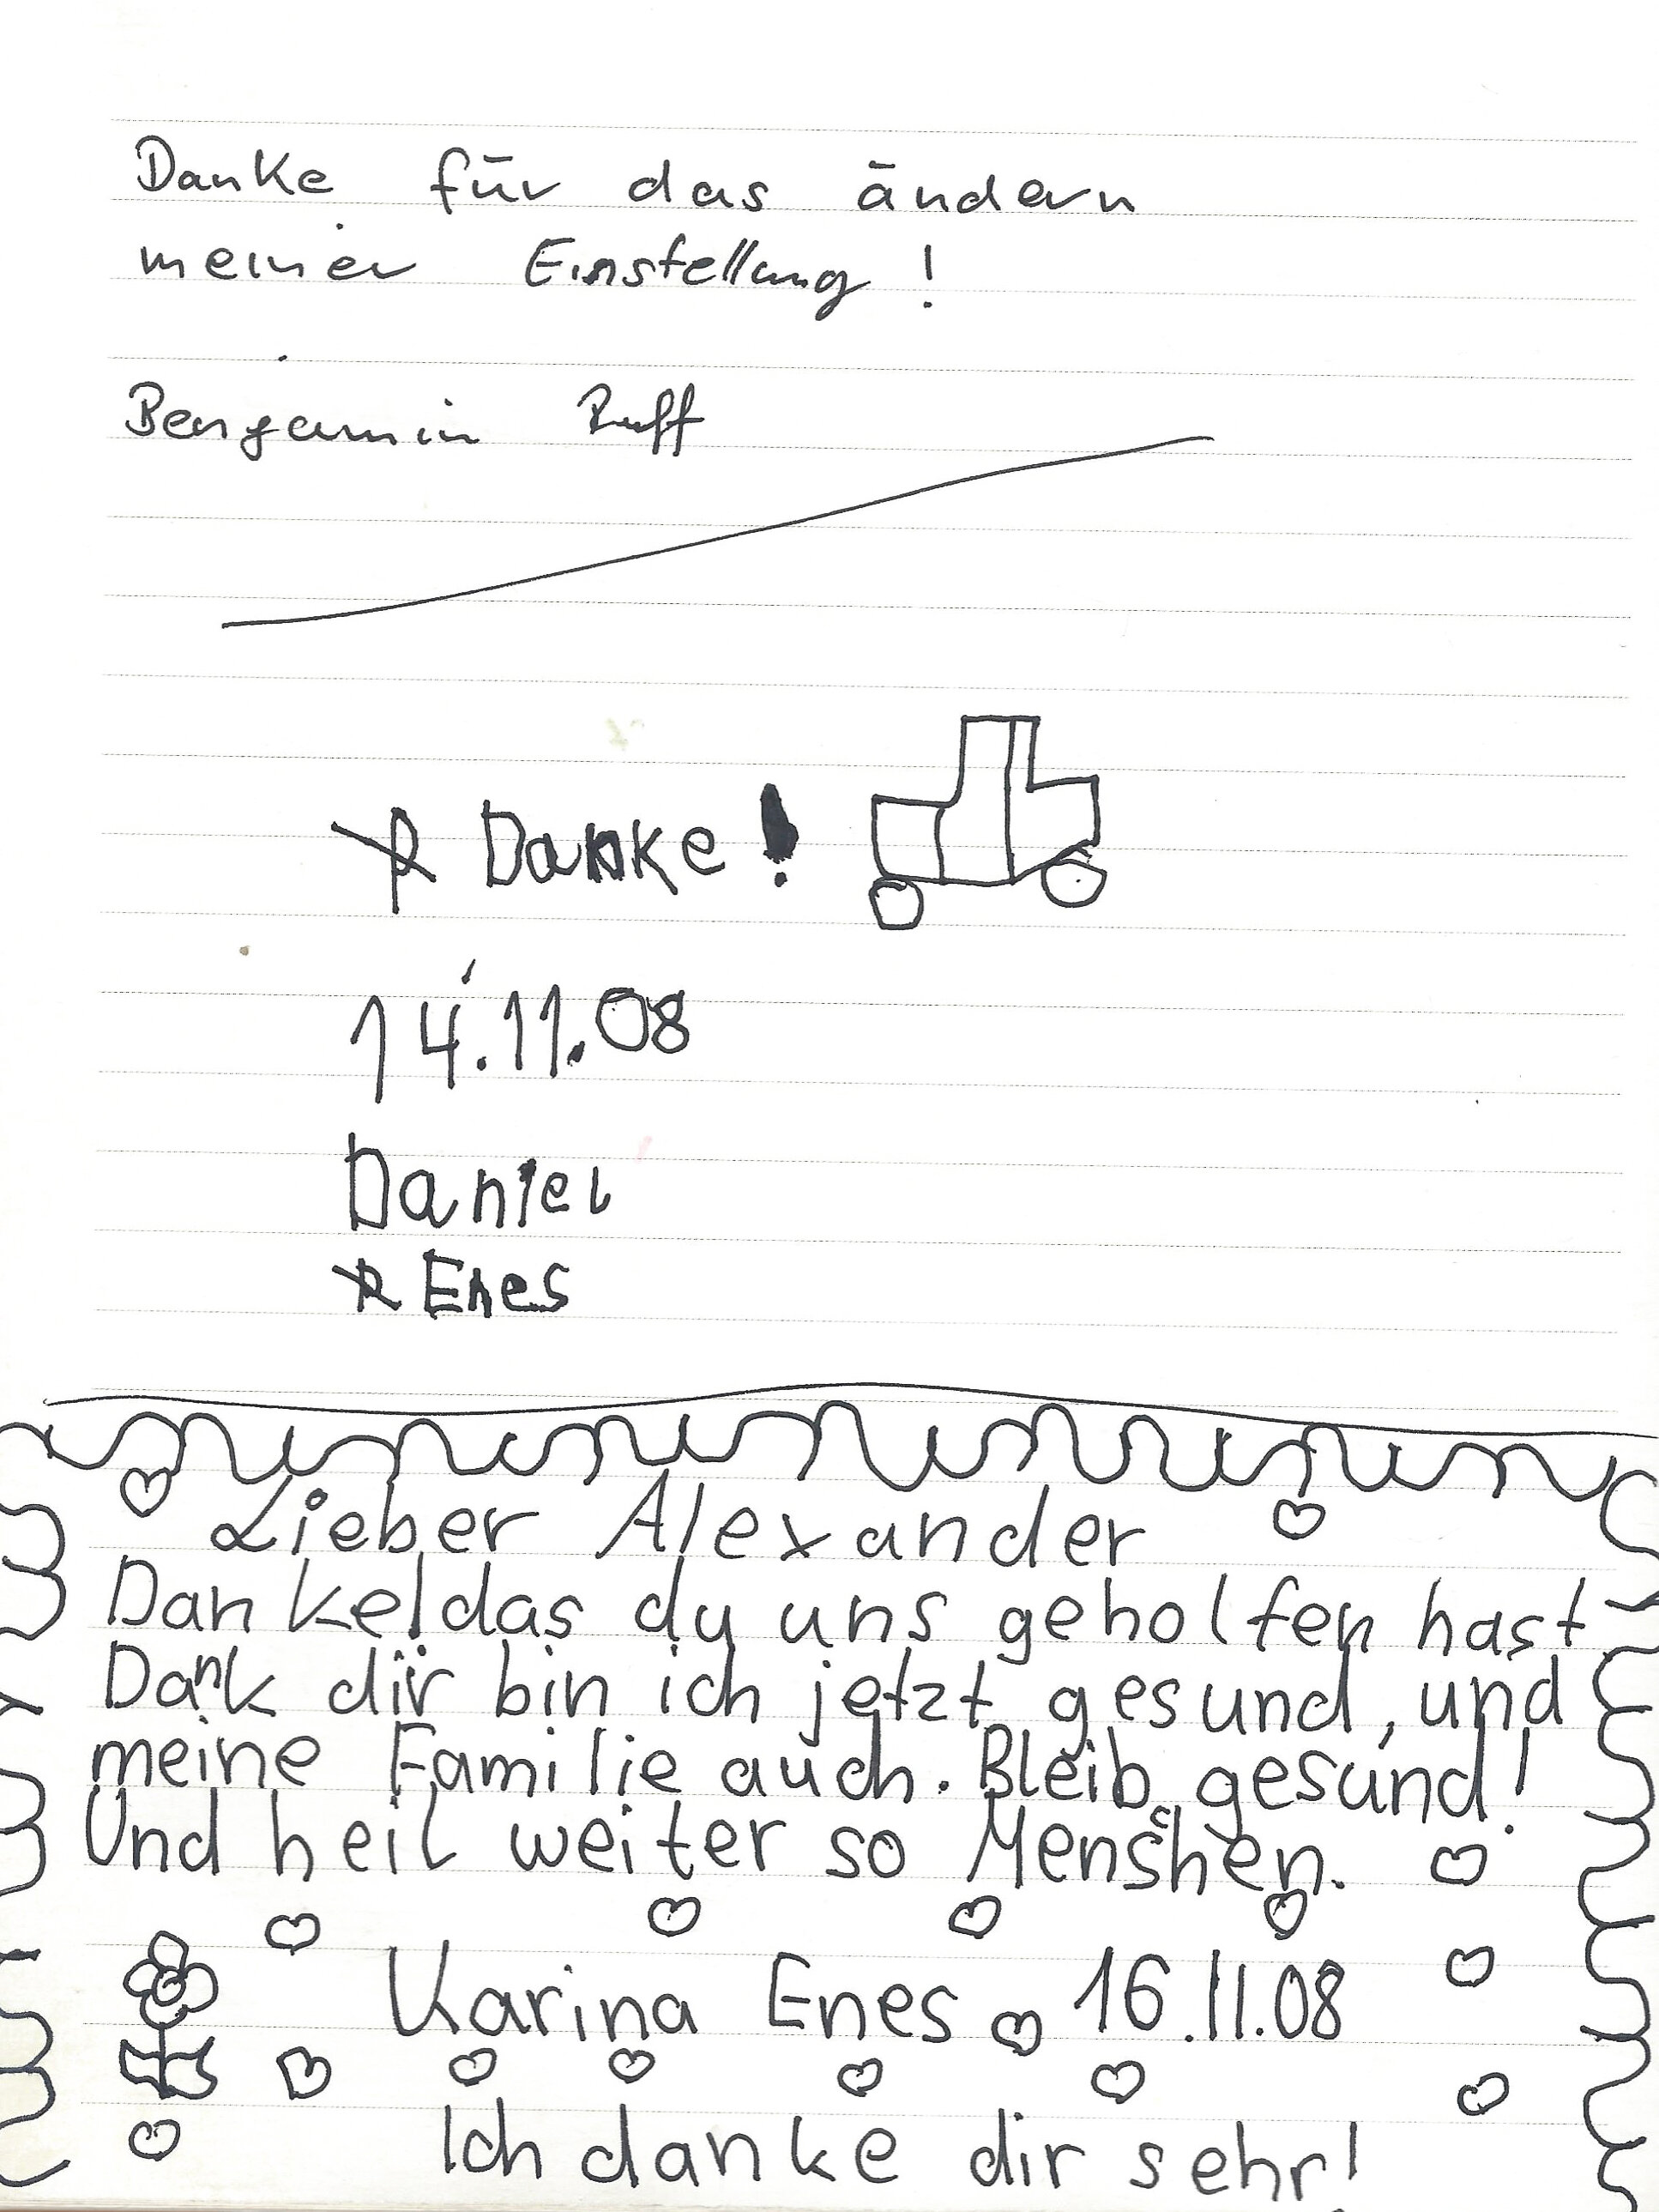 Danke für das ändern
meiner Einstellung!
Benjamin Ruff
Danke!
14.11.08
Daniel
Enes
Lieber Alexander
Danke! das du uns geholfen hast
Dank dir bin ich jetzt gesund, und
meine Familie auch. Bleib gesund!
Und heil weiter so Menschen.
Karina Enes 16.11.08
Ich danke dir sehr!